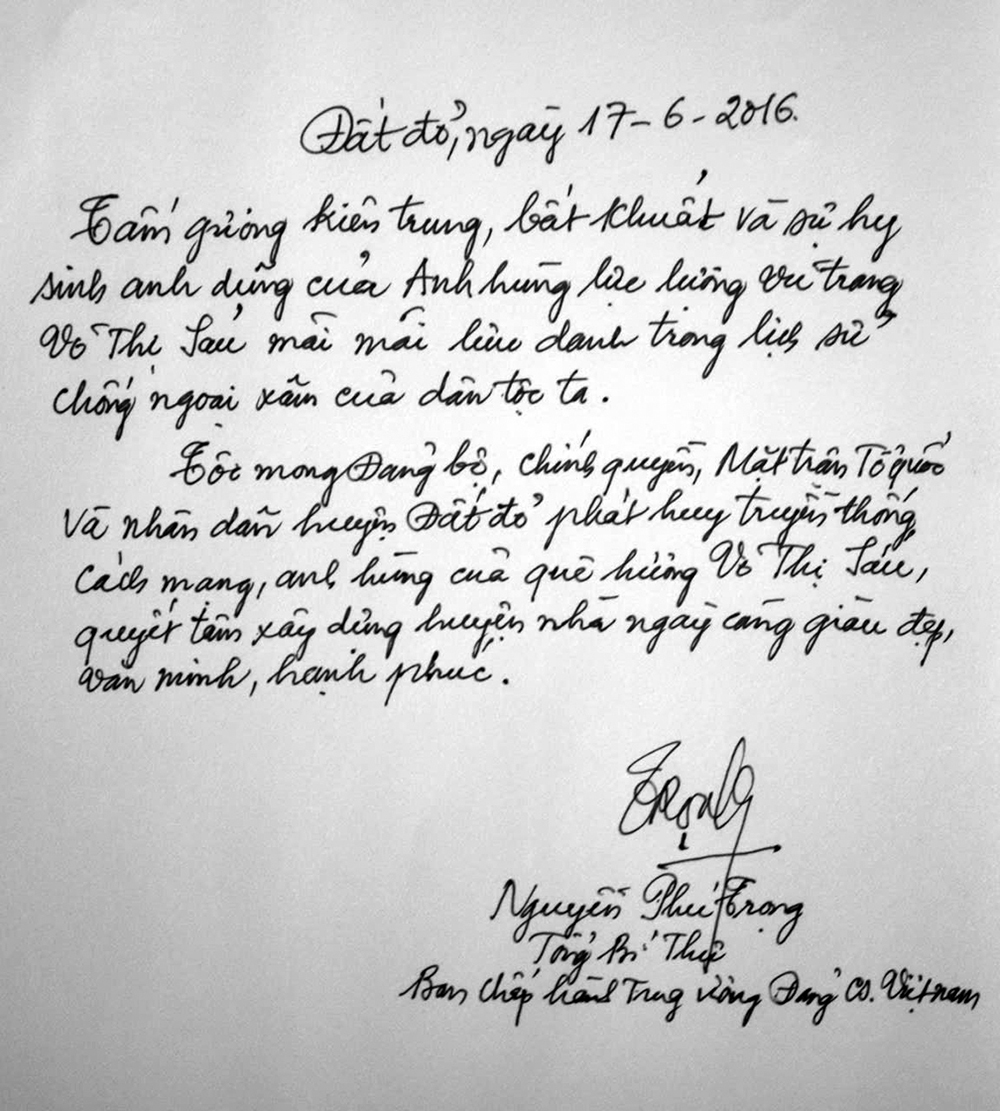 Đất đỏ, ngày 17-6-2016.
Tấm gương kiên trung, bất khuất và sự hy
sinh anh dũng của Anh hùng lực lượng vũ trang
Võ Thị Sáu mãi mãi lưu danh trong lịch sử
chống ngoại xâm của dân tộc ta.
Tôi mong Đảng bộ, chính quyền, Mặt trận Tổ quốc
và nhân dân huyện Đất đỏ phát huy truyền thống
cách mạng, anh hùng của quê hương Võ Thị Sáu,
quyết tâm xây dựng huyện nhà ngày càng giàu đẹp,
văn minh, hạnh phúc.
Trọng
Nguyễn Phú Trọng
Tổng Bí Thư
Ban Chấp hành Trung ương Đảng CS. Việt nam